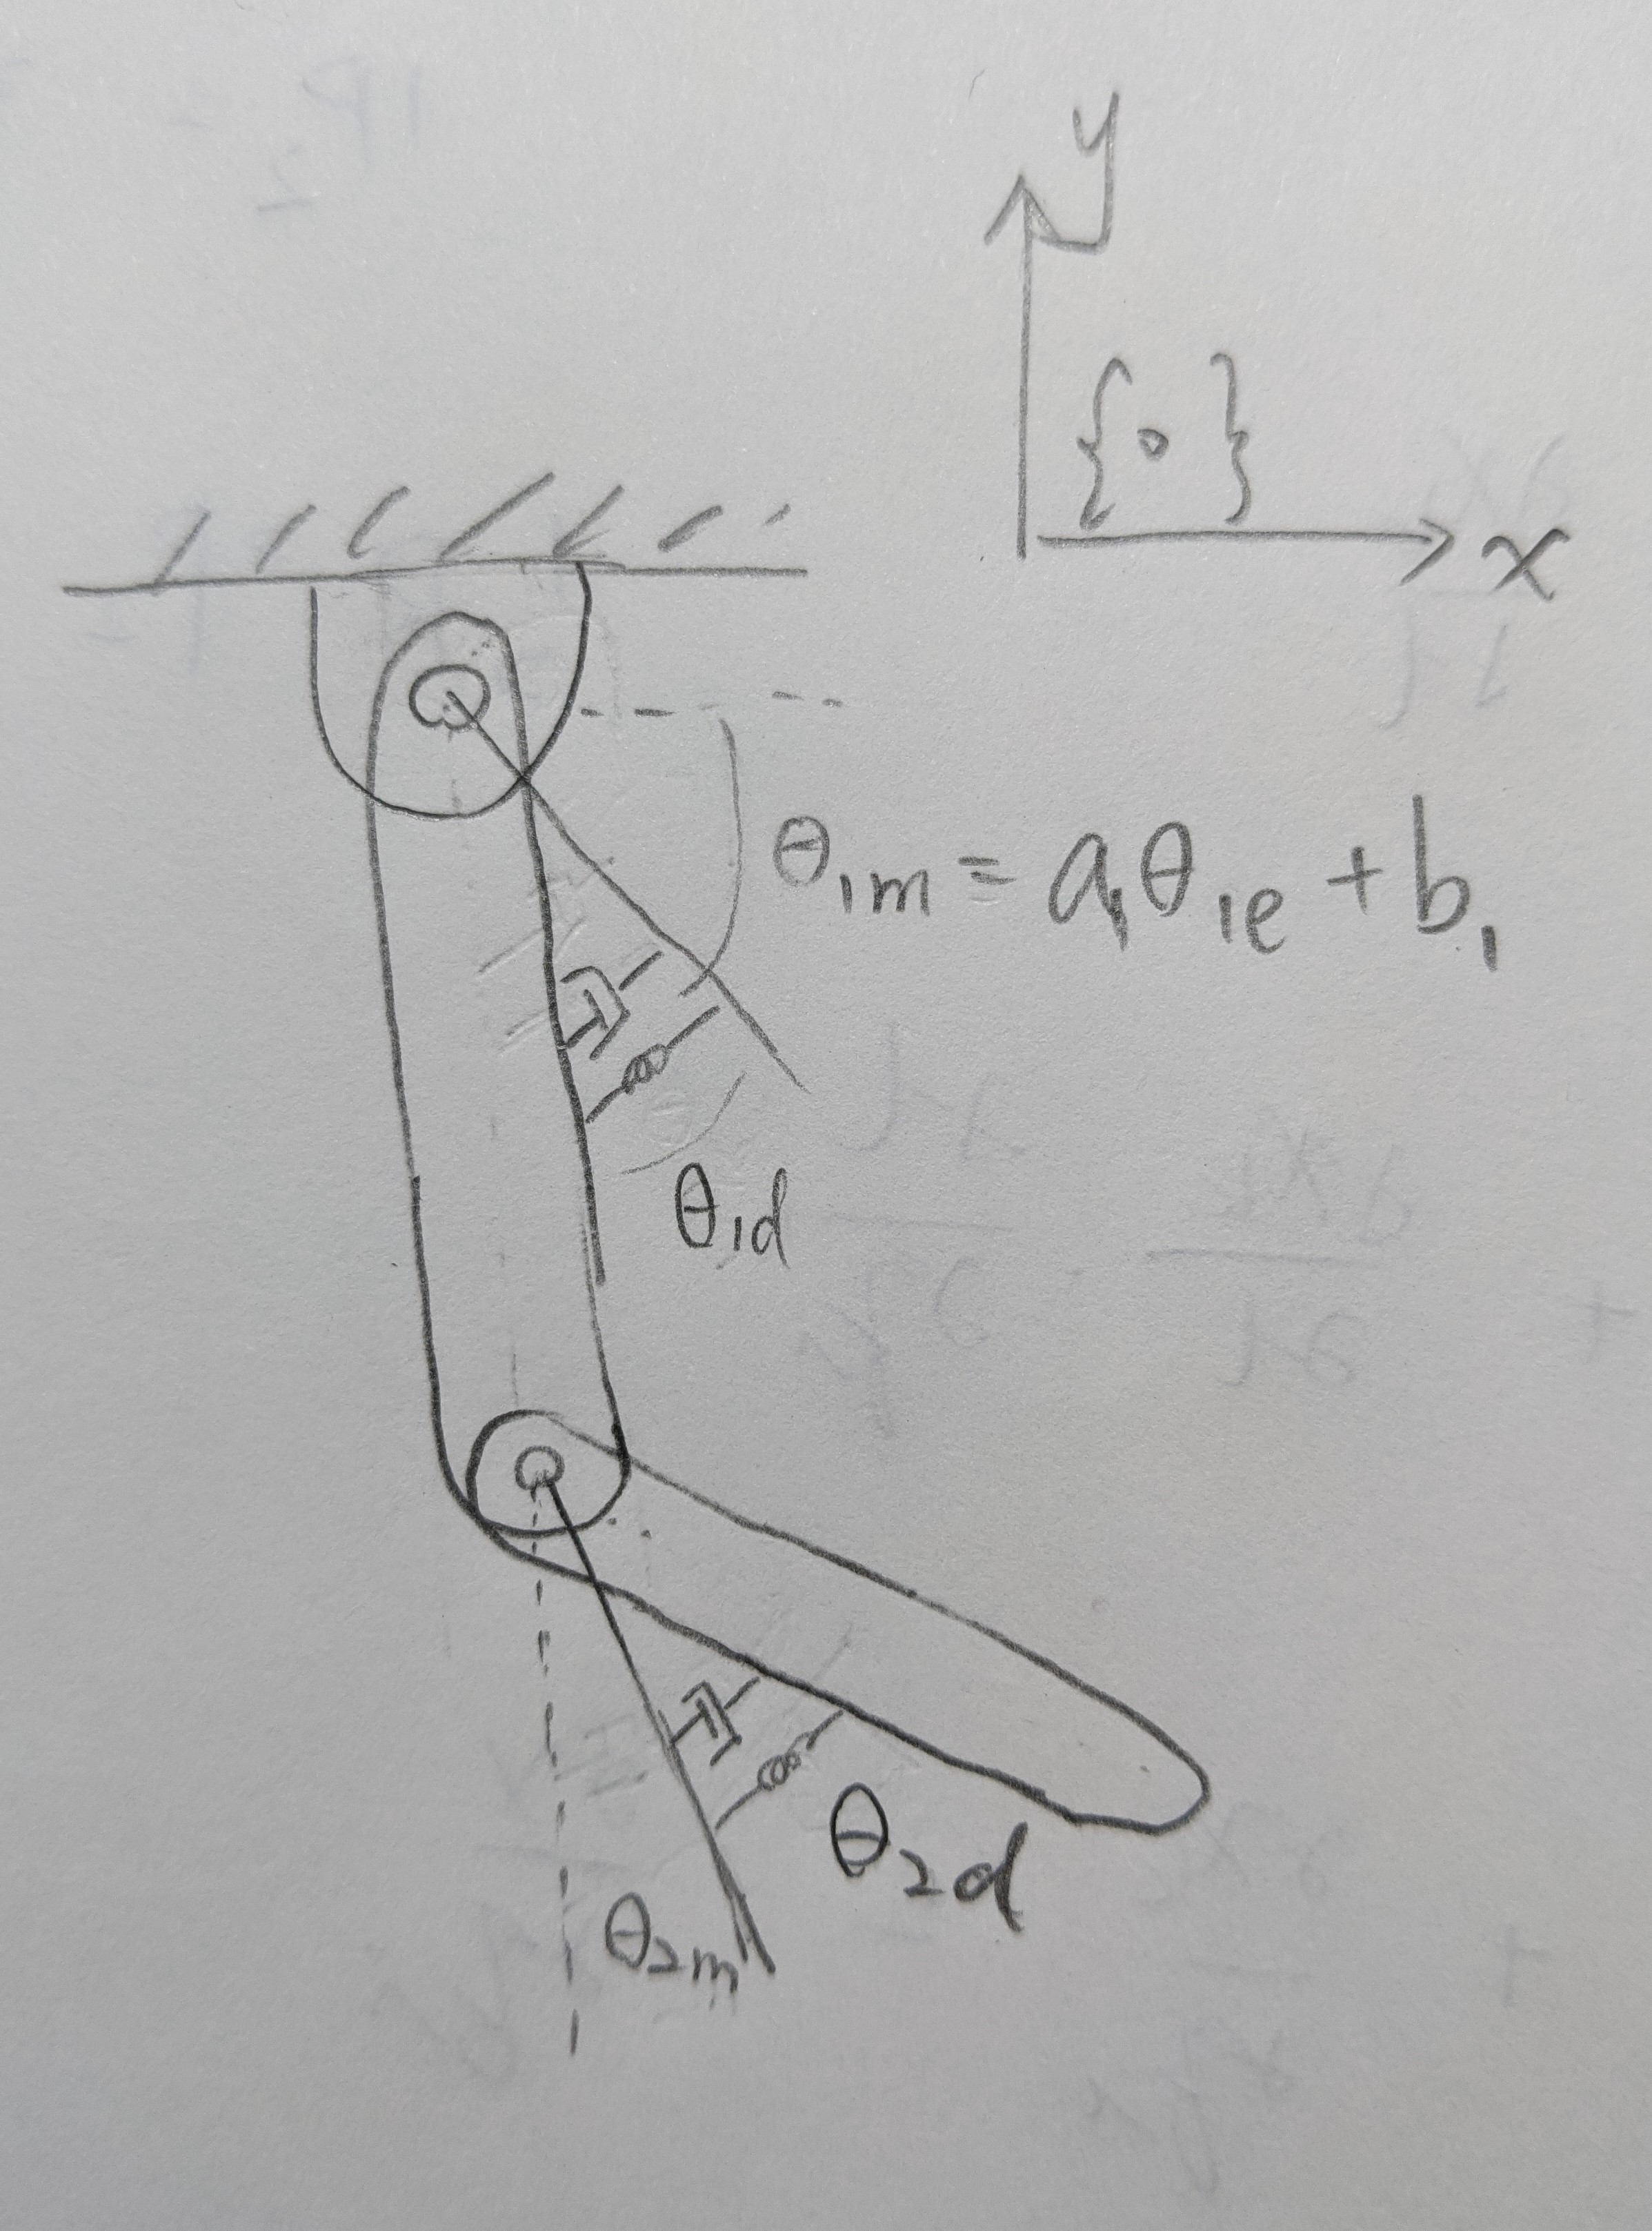 y
{0}
x
θ₁m = a₁θ₁e + b₁
θ₁d
θ₂d
θ₂m